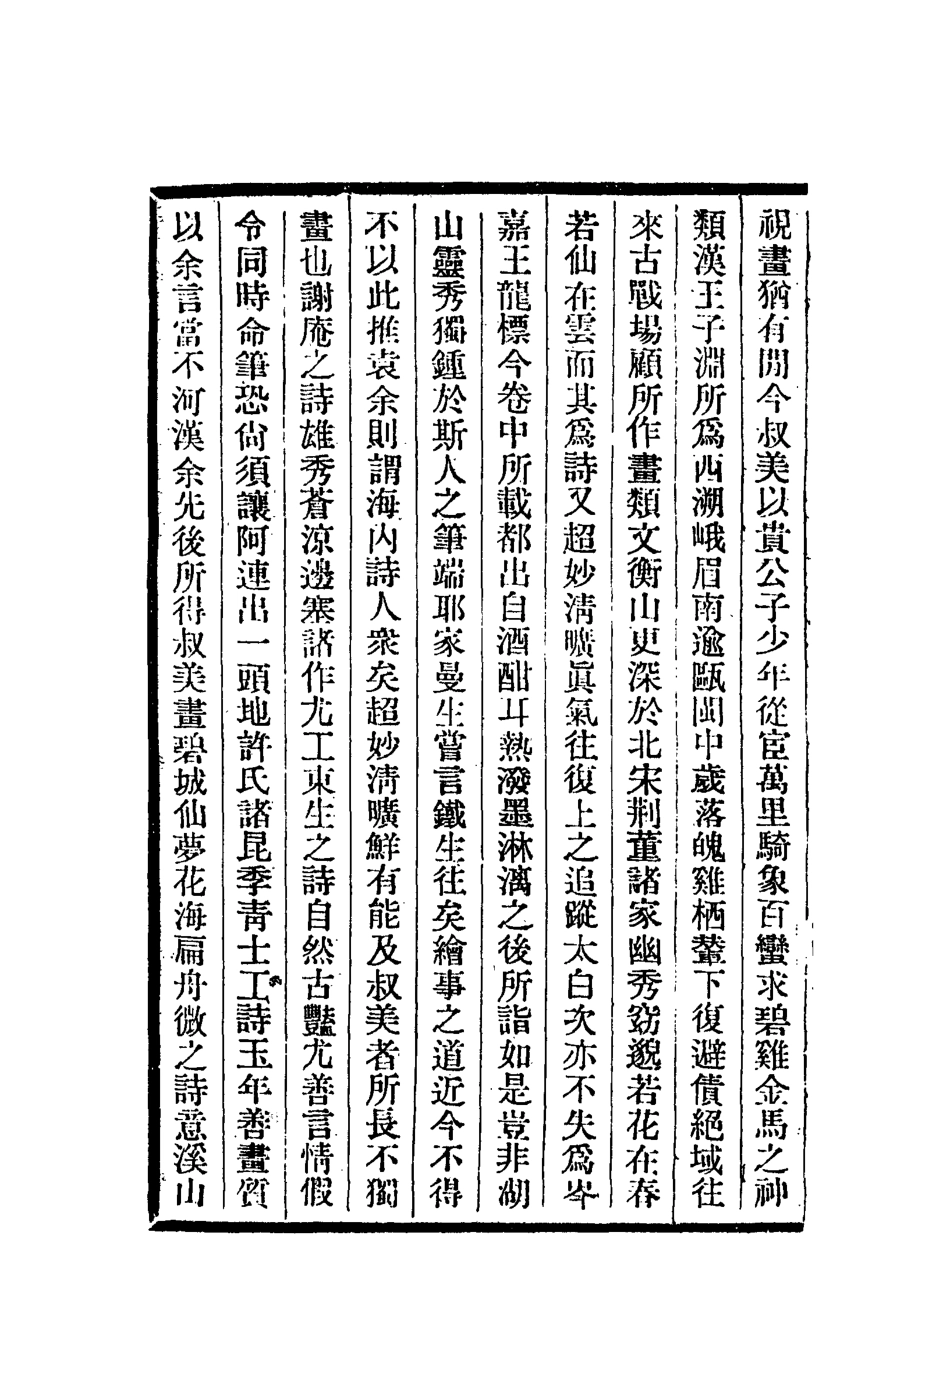 視畫猶有閒今叔美以貴公子少年從宦萬里騎象百蠻求碧雞金馬之神
類漢王子淵所爲西溯峨眉南逾甌閩中歲落魄雞栖輦下復避債絕域往
來古戰場顧所作畫類文衡山更深於北宋荆董諸家幽秀窈貌若花在春
若仙在雲而其爲詩又超妙淸曠眞氣往復上之追蹤太白次亦不失爲岑
嘉王龍標今卷中所載都出自酒酣耳熱潑墨淋漓之後所詣如是豈非湖
山靈秀獨鍾於斯人之筆端耶家曼生嘗言鐵生往矣繪事之道近今不得
不以此推袁余則謂海內詩人衆矣超妙淸曠鮮有能及叔美者所長不獨
畫也謝庵之詩雄秀蒼涼邊塞諸作尤工東生之詩自然古豔尤善言情假
令同時命筆恐尙須讓阿連出一頭地許氏諸昆季靑士工詩玉年善畫質
以余言當不河漢余先後所得叔美畫碧城仙夢花海扁舟微之詩意溪山